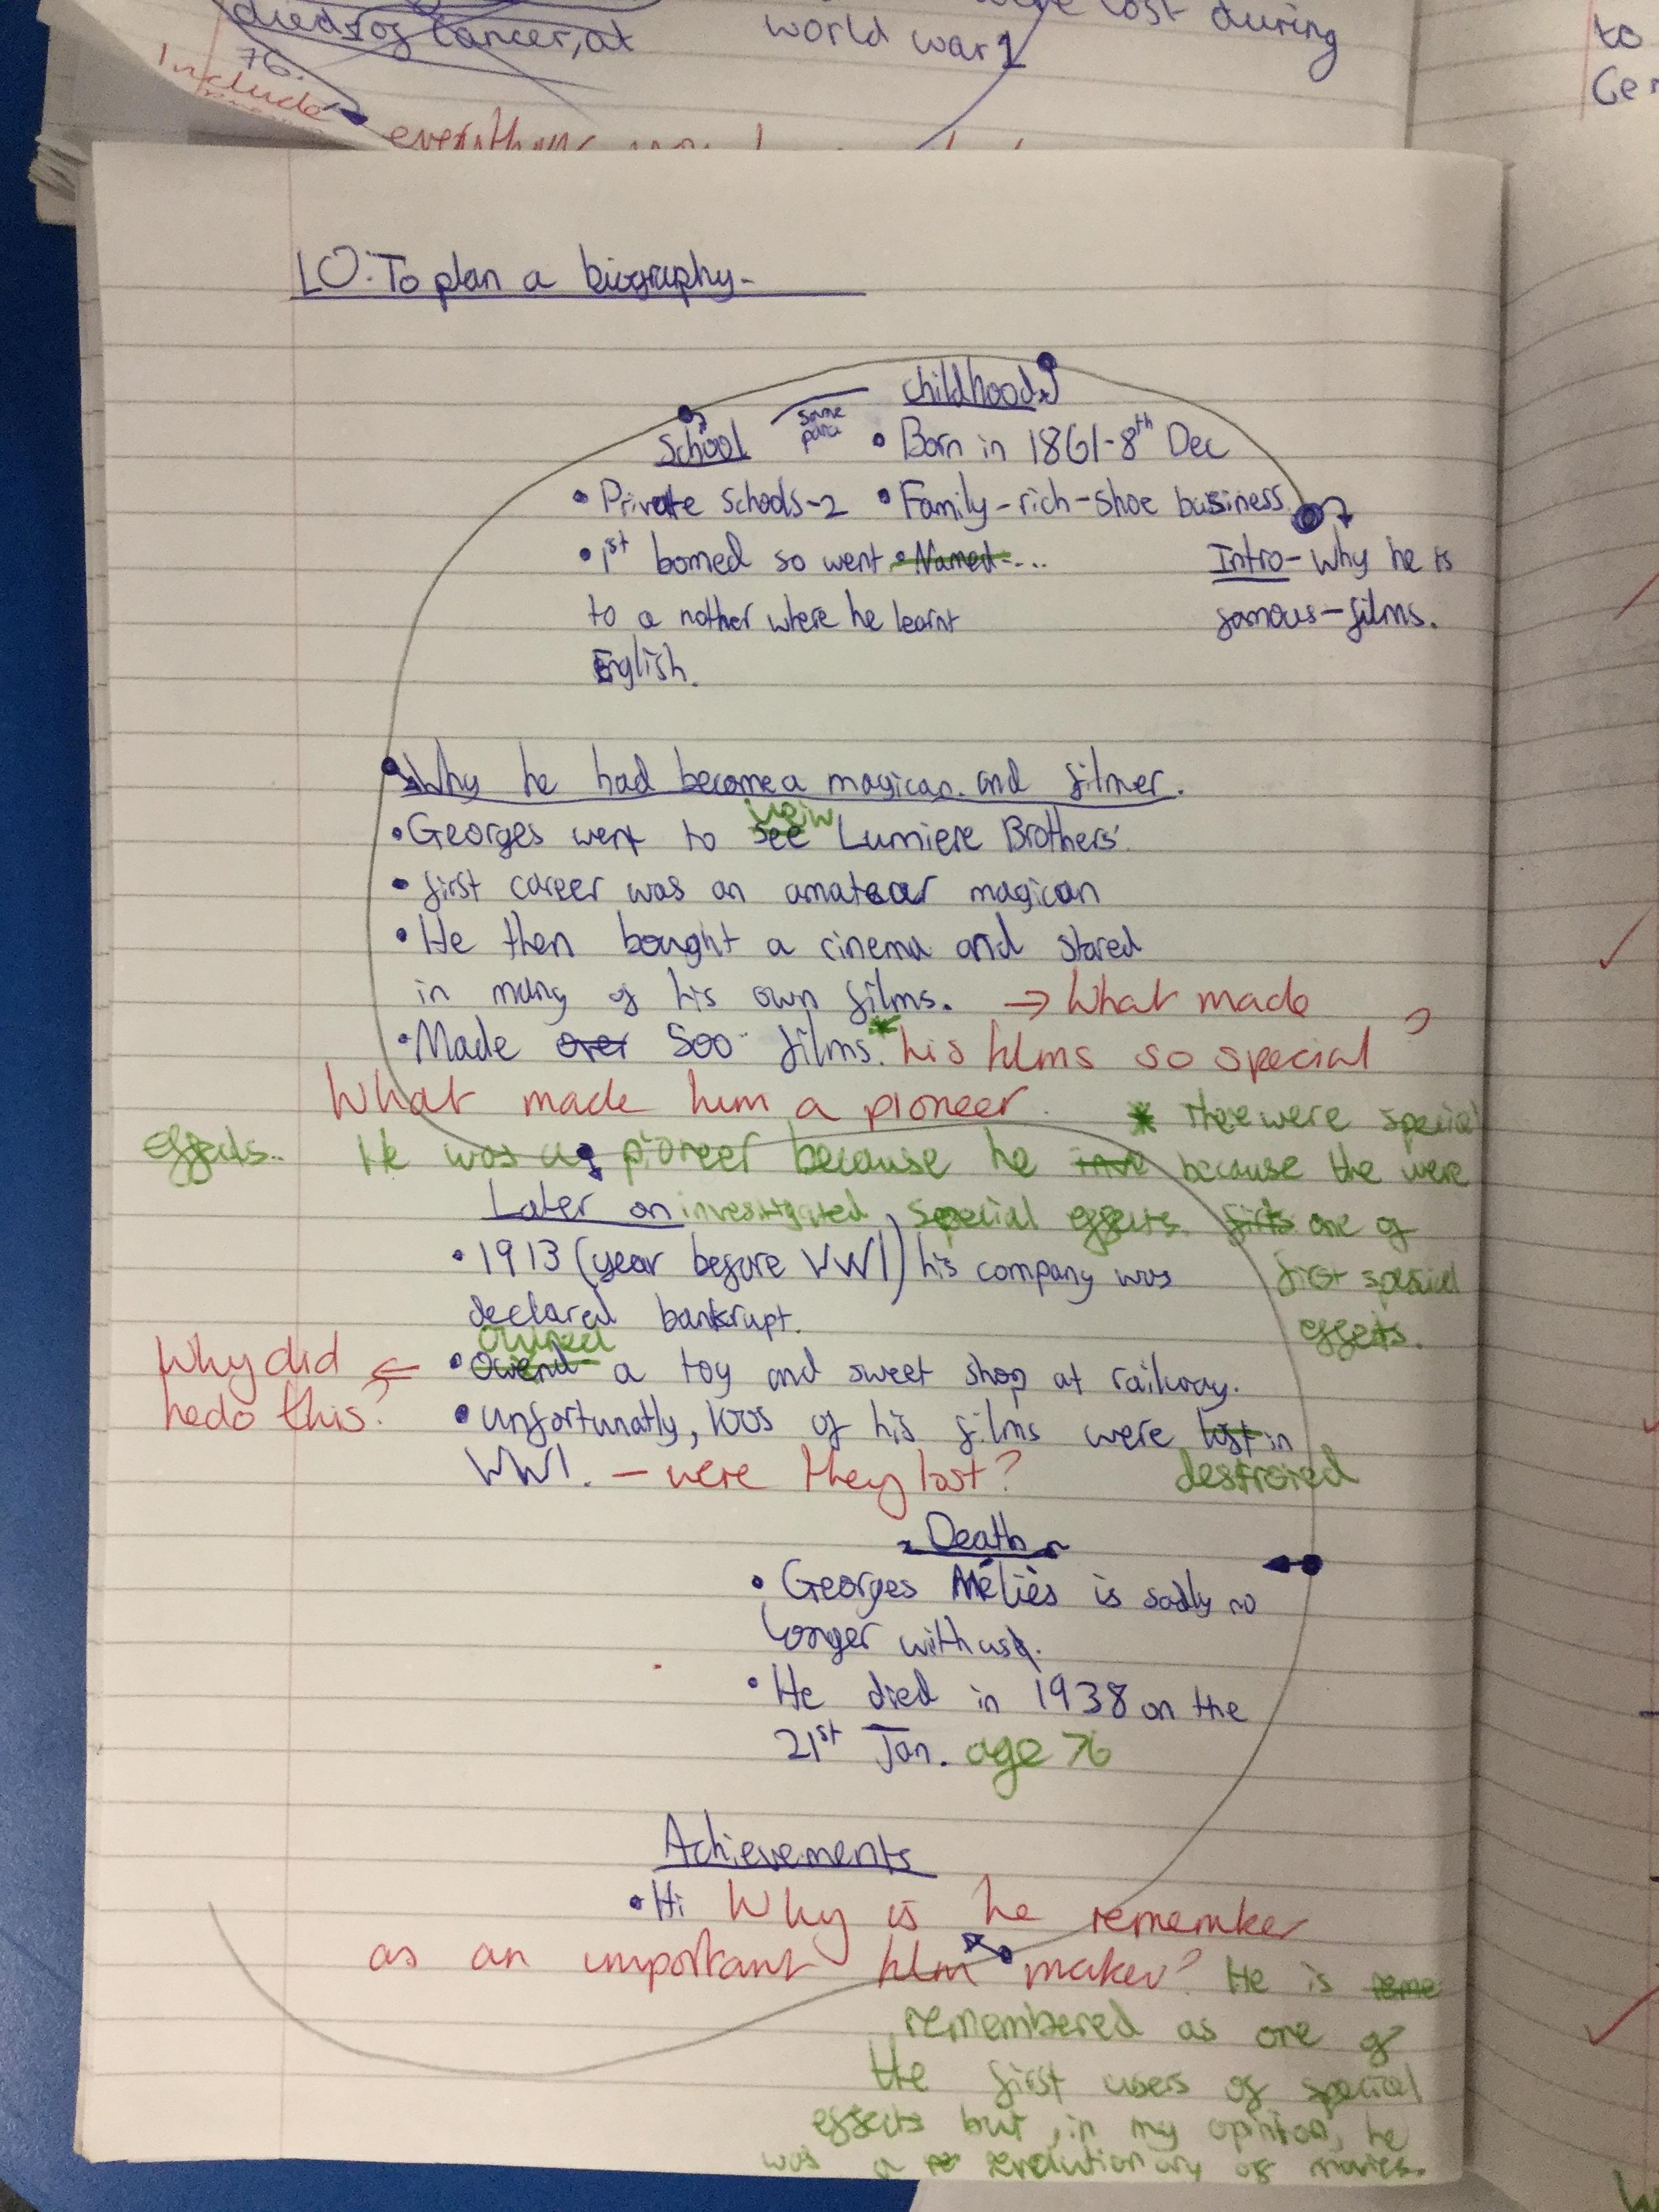 died of cancer, at
76.
world war 1
lost during
to
Ger
Include
LO: To plan a biography.
Childhood
School
same
para
• Born in 1861-8th Dec
• Private Schools-2
• Family-rich-shoe business
• 1st borned so went
• Named-...
to a nother where he learnt
English.
Intro-Why he is
famous-films.
Why he had become a magican and filmer.
veiw
• Georges went to see Lumiere Brothers'
• first career was an amateur magican
• He then bought a cinema and stared
in many of his own films. → What made
• Made over 500 films.* his films so special ?
What made him a pioneer.
* there were special
effects.. He was a pioneer because he because the were
Later on investigated special effects. firts one of
• 1913 (year before WW1) his company was
first special
declared bankrupt.
effects.
owned
Why did ← • Owend a toy and sweet shop at railway.
he do this?
• unfortunatly, 100s of his films were lost in
WW1. – were they lost?
destroied
Death
• Georges Méliès is sadly no
longer with us.
• He died in 1938 on the
21st Jan. age 76
Achievements
• Hi Why is he remember
as an important film maker? He is reme
remembered as one of
the first users of special
effects but, in my opinion, he
was a re revolutionary of movies.